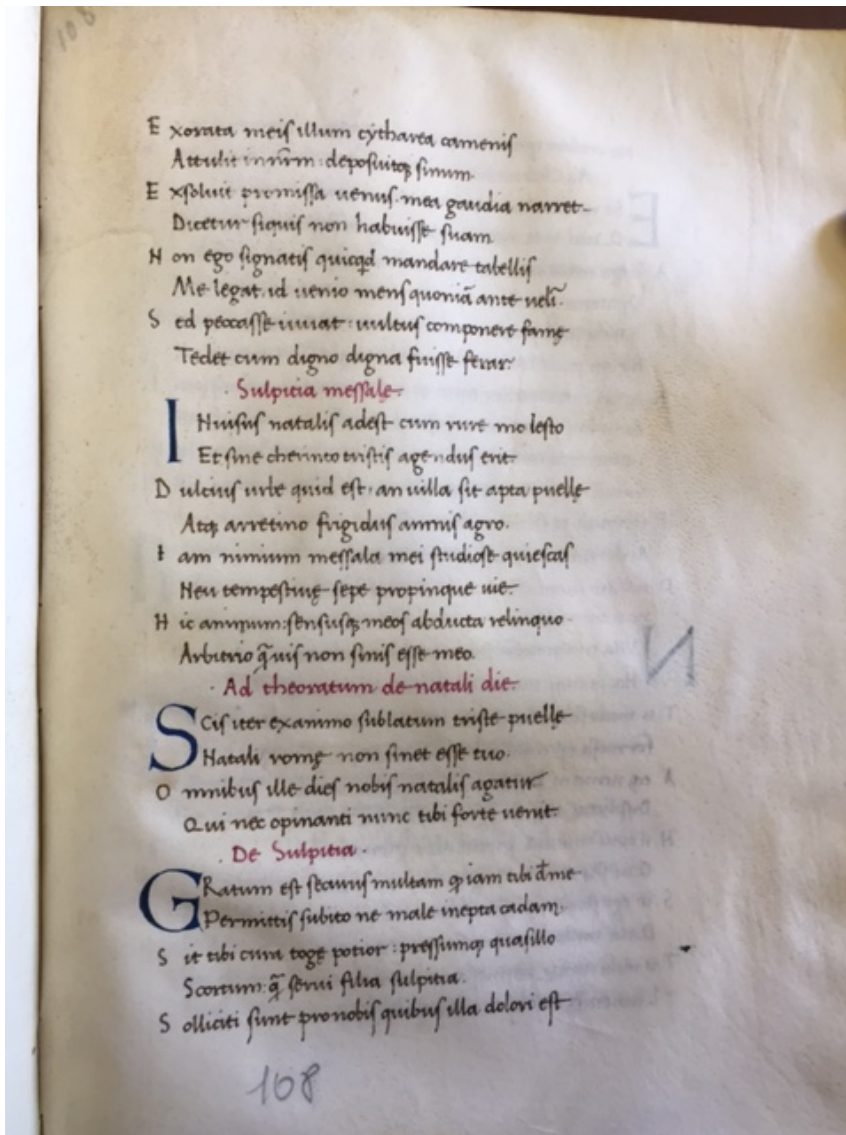 108
Exorata meis illum cytharea camenis
Attulit in nr̄m : deposuitqꝫ sinum.
Exsoluit promissa uenus. mea gaudia narret
Dicetur siquis non habuisse suam
Non ego signatis quicqd̄ mandare tabellis
Me legat. id uenio mens quoniā ante uelī.
Sed peccasse iuuat : uultus componere famę
Tedet cum digno digna fuisse ferar.
· Sulpitia messalę.
INuisus natalis adest cum rure molesto
Et sine cherinto tristis agendus erit.
Dulcius urbe quid est. an uilla sit apta puellę
Atqꝫ arretino frigidus amnis agro.
Iam nimium messala mei studiose quiescas
Neu tempestiuę sepe propinque uie.
Hic animum : sensusqꝫ meos abducta relinquo.
Arbitrio q̄uis non sinis esse meo.
· Ad theoratum de natali die.
SCis iter ex animo sublatum triste puellę
Natali romę non sinet esse tuo.
Omnibus ille dies nobis natalis agatur
Qui nec opinanti nunc tibi forte uenit.
· De Sulpitia ·
GRatum est securus multam ꝙ iam tibi d̄me
Permittis subito ne male inepta cadam.
Sit tibi cura togę potior : pressumqꝫ quasillo
Scortum : q̄ serui filia sulpitia.
Solliciti sunt pro nobis quibus illa dolori est
108